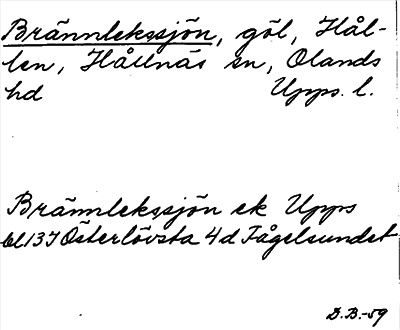 Brännlekssjön, göl, Hål-
len, Hållnäs sn, Olands
hd Upps. l.
Brännlekssjön ek Upps
bl 13I Österlövsta 4d Fågelsundet
D.B.-59